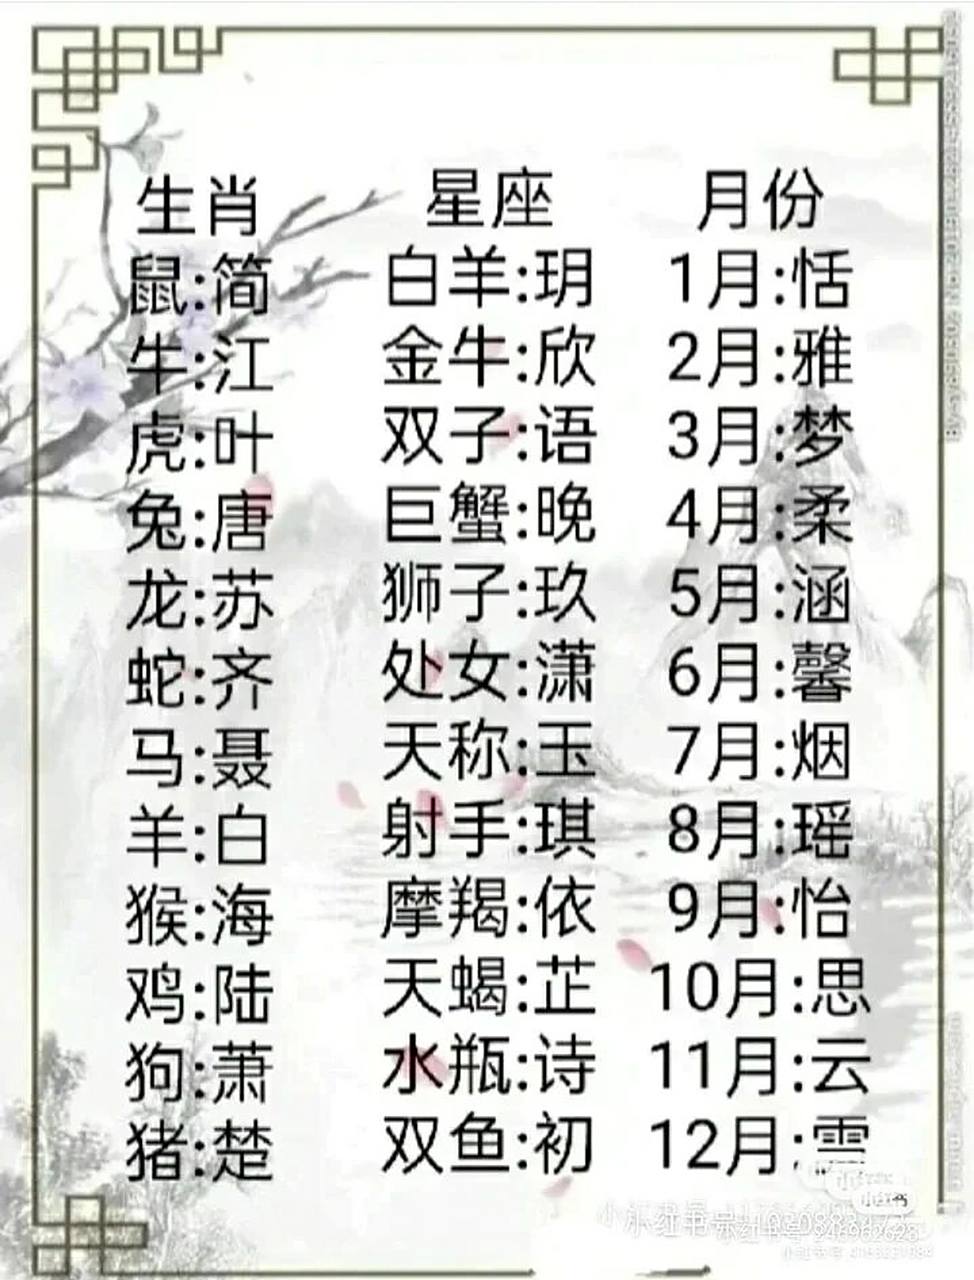 生肖 星座 月份
鼠:简 白羊:玥 1月:恬
牛:江 金牛:欣 2月:雅
虎:叶 双子:语 3月:梦
兔:唐 巨蟹:晚 4月:柔
龙:苏 狮子:玖 5月:涵
蛇:齐 处女:潇 6月:馨
马:聂 天称:玉 7月:烟
羊:白 射手:琪 8月:瑶
猴:海 摩羯:依 9月:怡
鸡:陆 天蝎:芷 10月:思
狗:萧 水瓶:诗 11月:云
猪:楚 双鱼:初 12月:雪
小红书